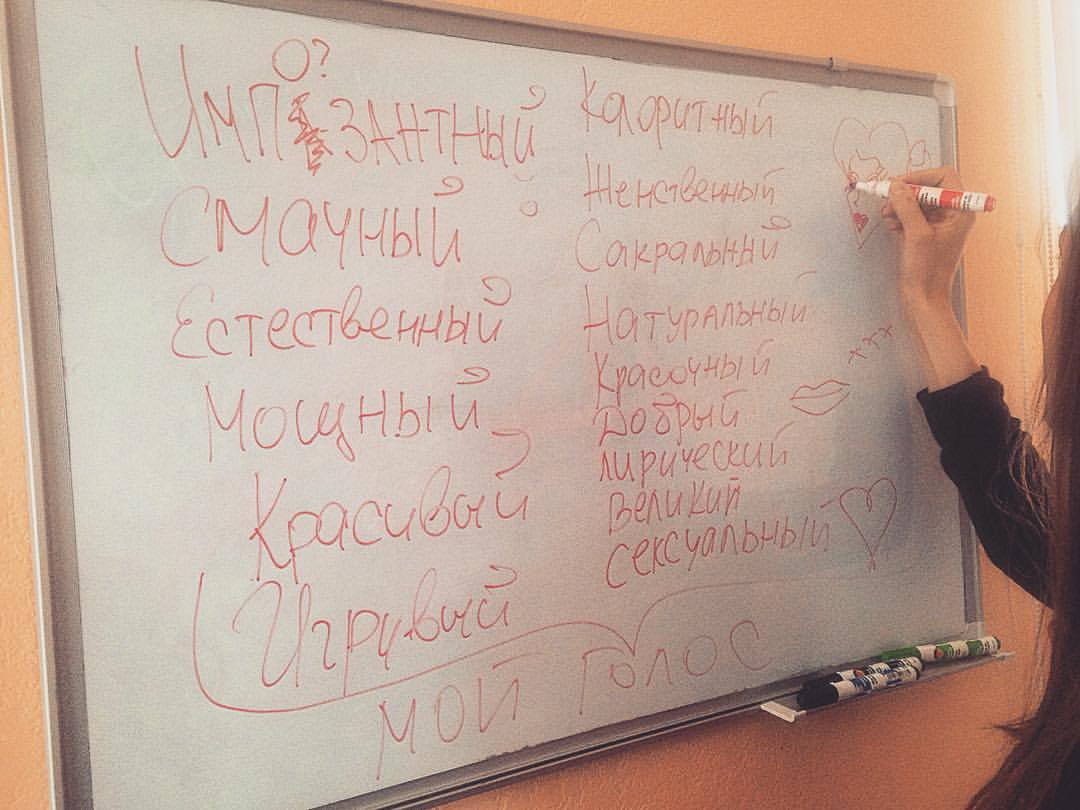 О?
Импзантный
Смачный
Естественный
Мощный
Красивый
Игривый
Колоритный
Женственный
Сакральный
Натуральный
Красочный
Добрый
лирический
великий
сексуальный
ххх
мой голос